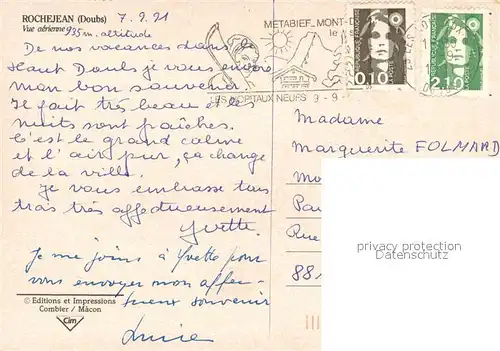 ROCHEJEAN (Doubs) 7.9.91
Vue aérienne 935 m. altitude
De nos vacances dans le
Haut Doubs je vous envoie
mon bon souvenir.
Il fait très beau et les
nuits sont fraîches.
C'est le grand calme
et l'air pur, ça change
de la ville.
Je vous embrasse tous
trois très affectueusement
Yvette.
Je me joins à Yvette pour
vous envoyer mon affec-
tueux souvenir
© Editions et Impressions
Combier / Mâcon
Cim
METABIEF MONT-D
le
LES HOPITAUX NEUFS 9-9
0,10
2,10
Madame
Marguerite FOLMARD
Rue
881
privacy protection
Datenschutz